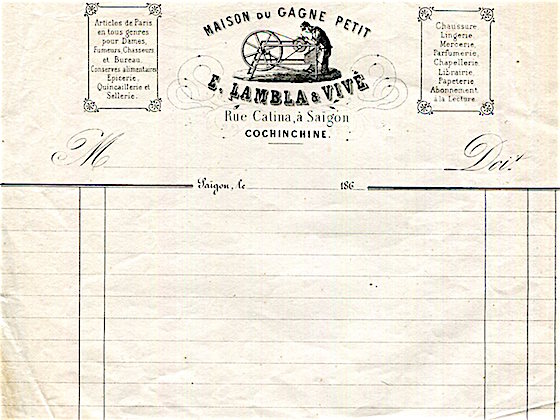 Articles de Paris
en tous genres
pour Dames,
Fumeurs, Chasseurs
et Bureau.
Conserves alimentaires
Epicerie,
Quincaillerie et
Sellerie.
MAISON DU GAGNE PETIT
E. LAMBLA & VIVÉ
Rue Catina, à Saïgon
COCHINCHINE.
Chaussure
Lingerie,
Mercerie,
Parfumerie,
Chapellerie
Librairie,
Papeterie
Abonnement
à la Lecture.
M
Doit
Saigon, le 186